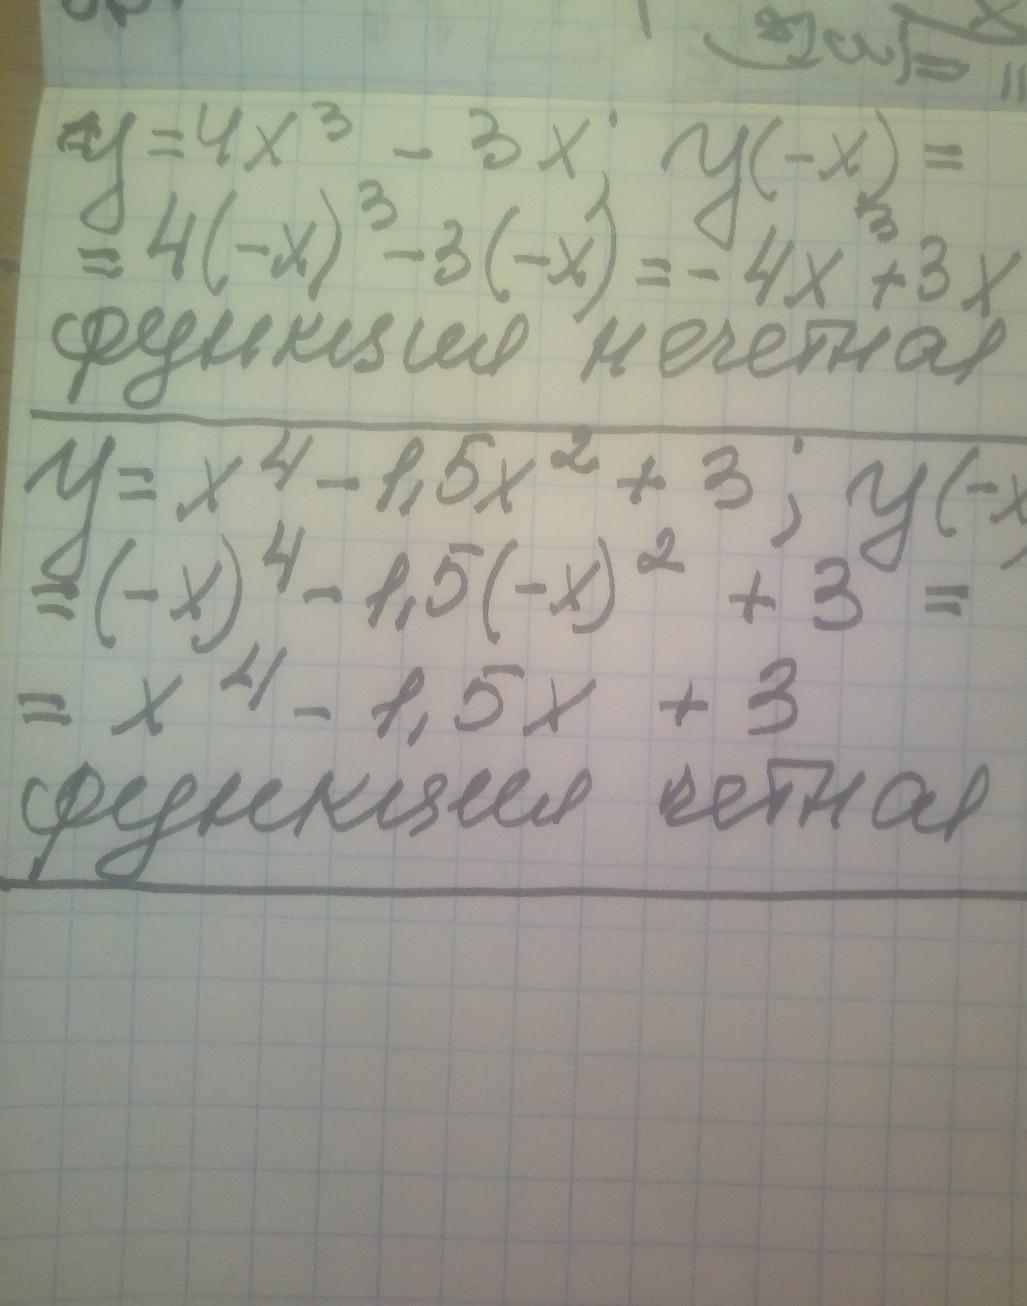 y = 4x³ - 3x; y(-x) =
= 4(-x)³ - 3(-x) = -4x³ + 3x
функция нечетная
y = x⁴ - 1,5x² + 3; y(-x)
= (-x)⁴ - 1,5(-x)² + 3 =
= x⁴ - 1,5x + 3
функция четная